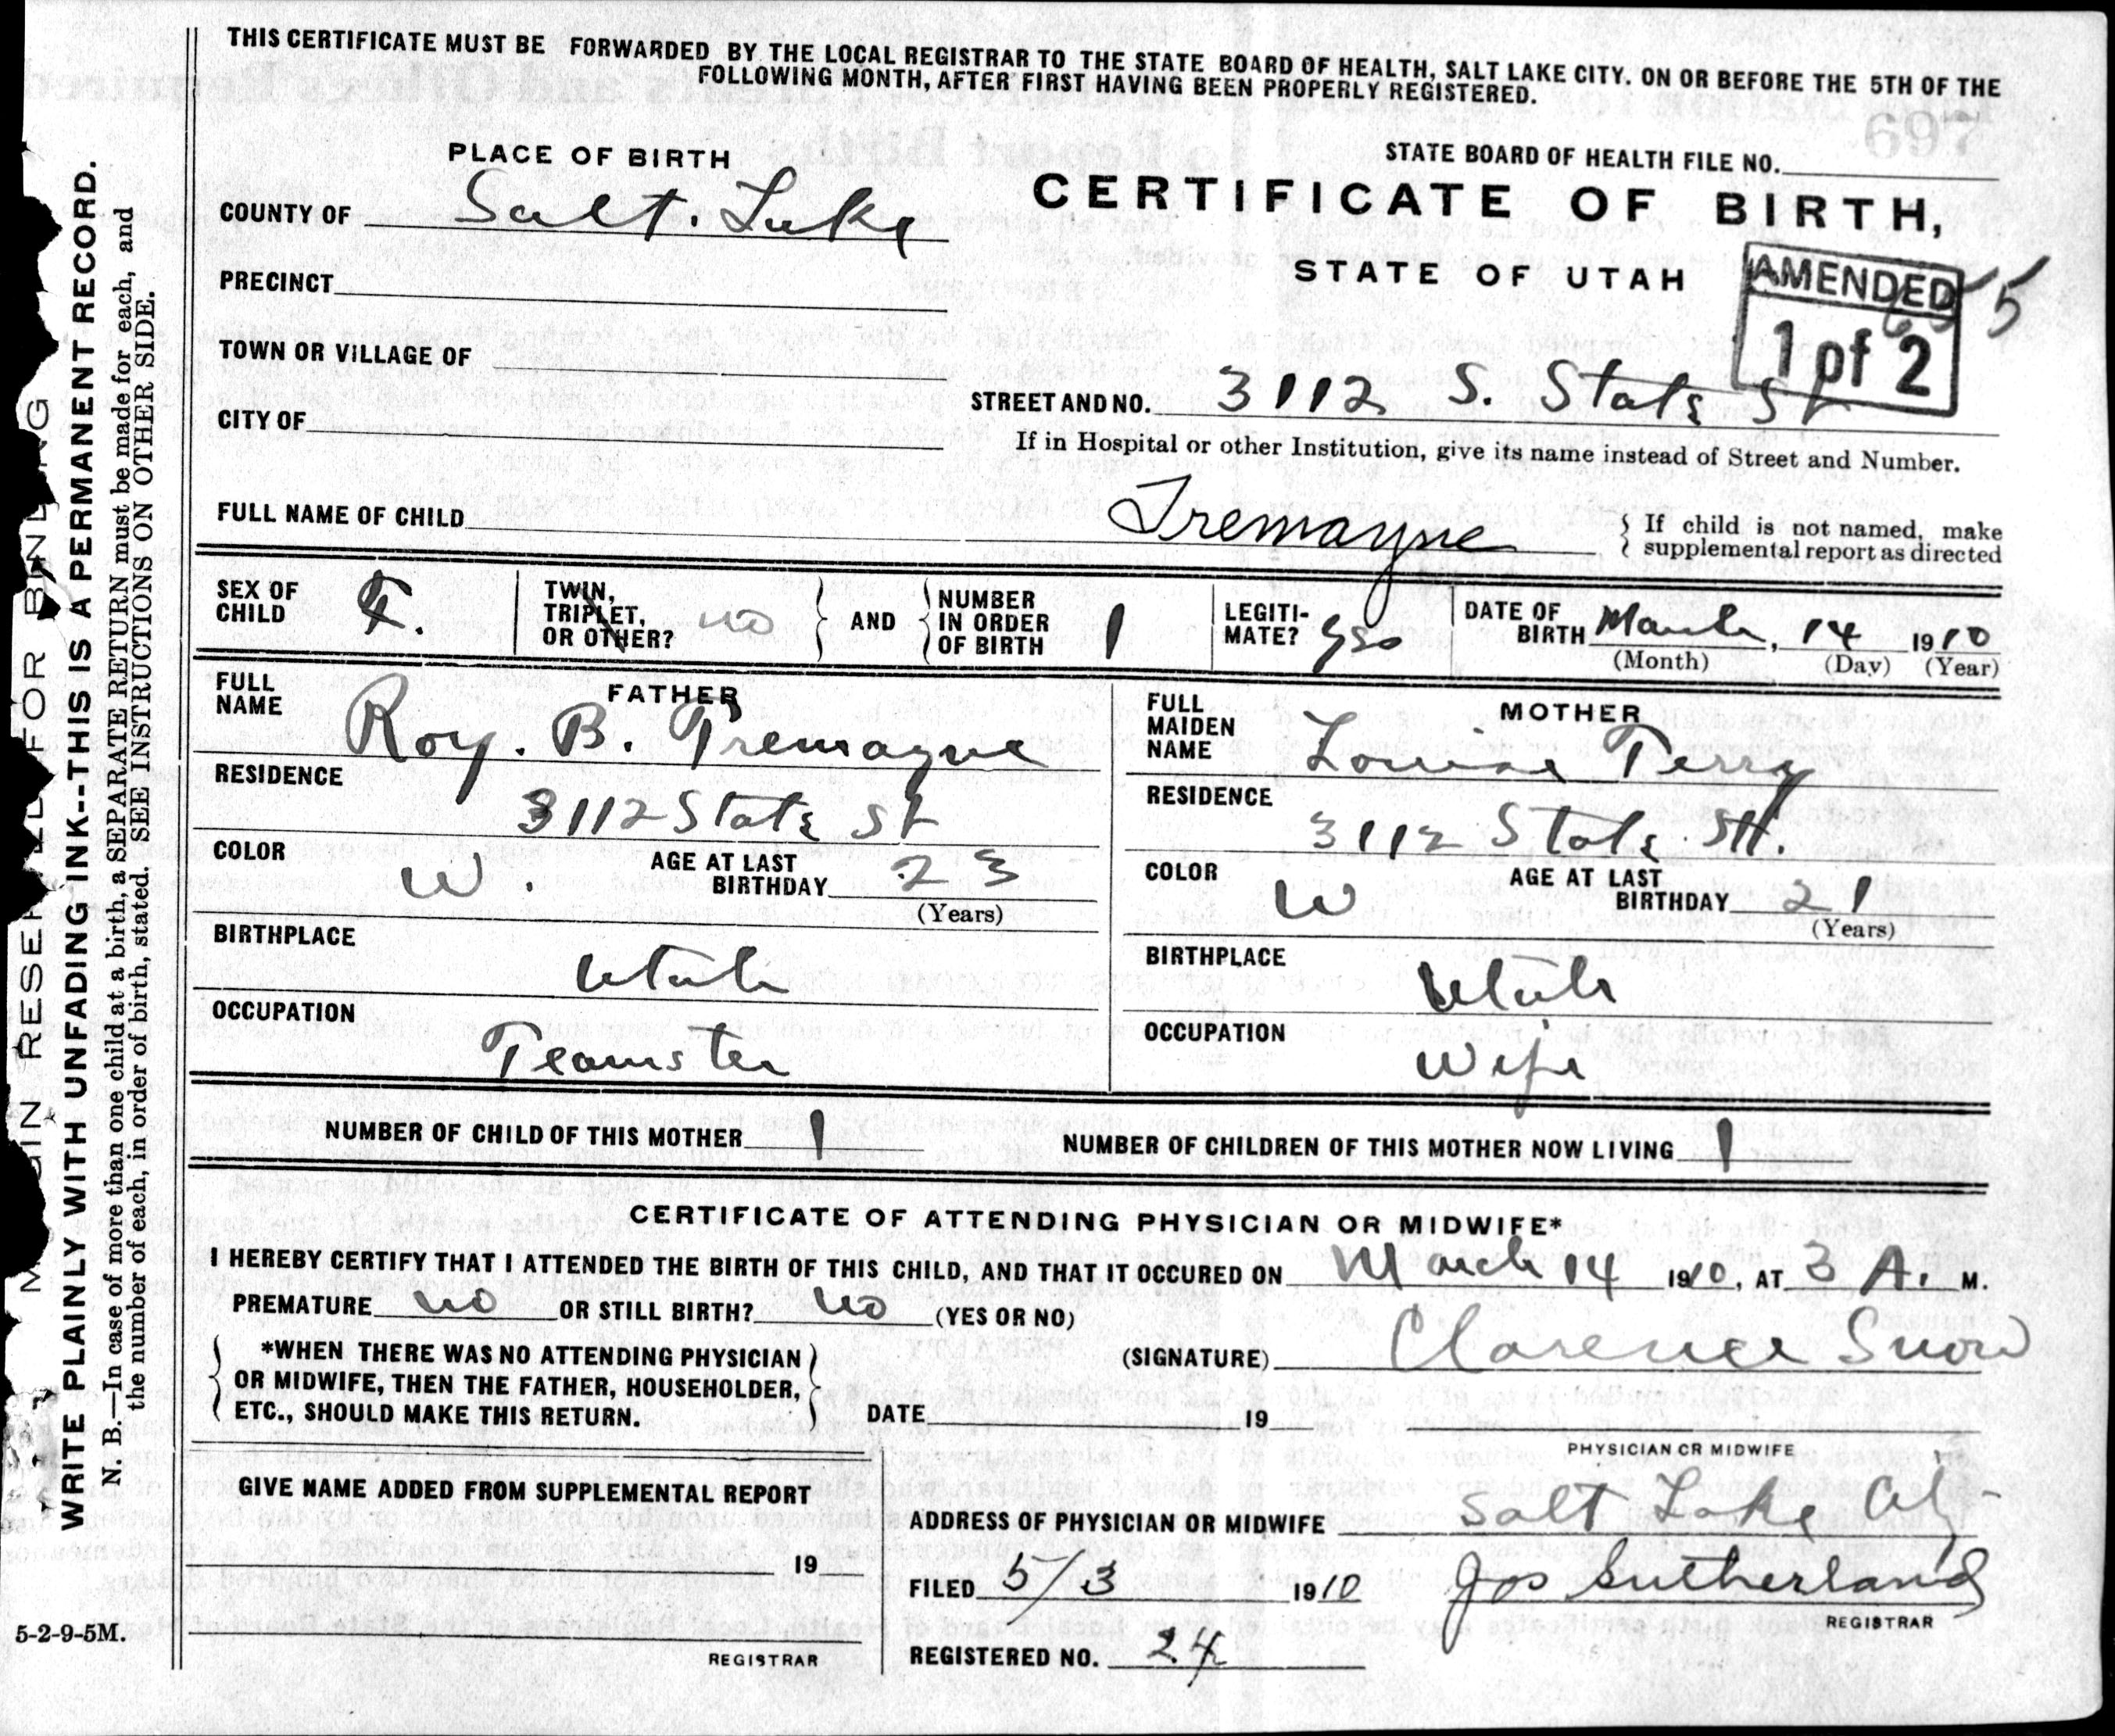 THIS CERTIFICATE MUST BE FORWARDED BY THE LOCAL REGISTRAR TO THE STATE BOARD OF HEALTH, SALT LAKE CITY. ON OR BEFORE THE 5TH OF THE
FOLLOWING MONTH, AFTER FIRST HAVING BEEN PROPERLY REGISTERED.
697
PLACE OF BIRTH
STATE BOARD OF HEALTH FILE NO.
COUNTY OF Salt. Lake
CERTIFICATE OF BIRTH,
PRECINCT
STATE OF UTAH
AMENDED
1 of 2
TOWN OR VILLAGE OF
STREET AND NO. 3112 S. State St
CITY OF
If in Hospital or other Institution, give its name instead of Street and Number.
FULL NAME OF CHILD Tremayne
If child is not named, make
supplemental report as directed
SEX OF
CHILD F.
TWIN,
TRIPLET,
OR OTHER? no
AND
NUMBER
IN ORDER
OF BIRTH 1
LEGITI-
MATE? yes
DATE OF
BIRTH March, 14 1910
(Month) (Day) (Year)
FULL
NAME
FATHER
Roy. B. Tremayne
RESIDENCE
3112 State St
COLOR W. AGE AT LAST
BIRTHDAY 23
(Years)
BIRTHPLACE
Utah
OCCUPATION
Teamster
FULL
MAIDEN
NAME
MOTHER
Louise Terry
RESIDENCE
3112 State St.
COLOR W AGE AT LAST
BIRTHDAY 21
(Years)
BIRTHPLACE
Utah
OCCUPATION
Wife
NUMBER OF CHILD OF THIS MOTHER 1 NUMBER OF CHILDREN OF THIS MOTHER NOW LIVING 1
CERTIFICATE OF ATTENDING PHYSICIAN OR MIDWIFE*
I HEREBY CERTIFY THAT I ATTENDED THE BIRTH OF THIS CHILD, AND THAT IT OCCURED ON March 14 1910, AT 3 A. M.
PREMATURE no OR STILL BIRTH? no (YES OR NO)
*WHEN THERE WAS NO ATTENDING PHYSICIAN
OR MIDWIFE, THEN THE FATHER, HOUSEHOLDER,
ETC., SHOULD MAKE THIS RETURN.
(SIGNATURE) Clarence Snow
DATE 19
PHYSICIAN OR MIDWIFE
GIVE NAME ADDED FROM SUPPLEMENTAL REPORT
19
REGISTRAR
ADDRESS OF PHYSICIAN OR MIDWIFE Salt Lake City
FILED 5/3 1910 Jos Sutherland
REGISTRAR
REGISTERED NO. 24
5-2-9-5M.
WRITE PLAINLY WITH UNFADING INK--THIS IS A PERMANENT RECORD.
N. B.—In case of more than one child at a birth, a SEPARATE RETURN must be made for each, and
the number of each, in order of birth, stated. SEE INSTRUCTIONS ON OTHER SIDE.